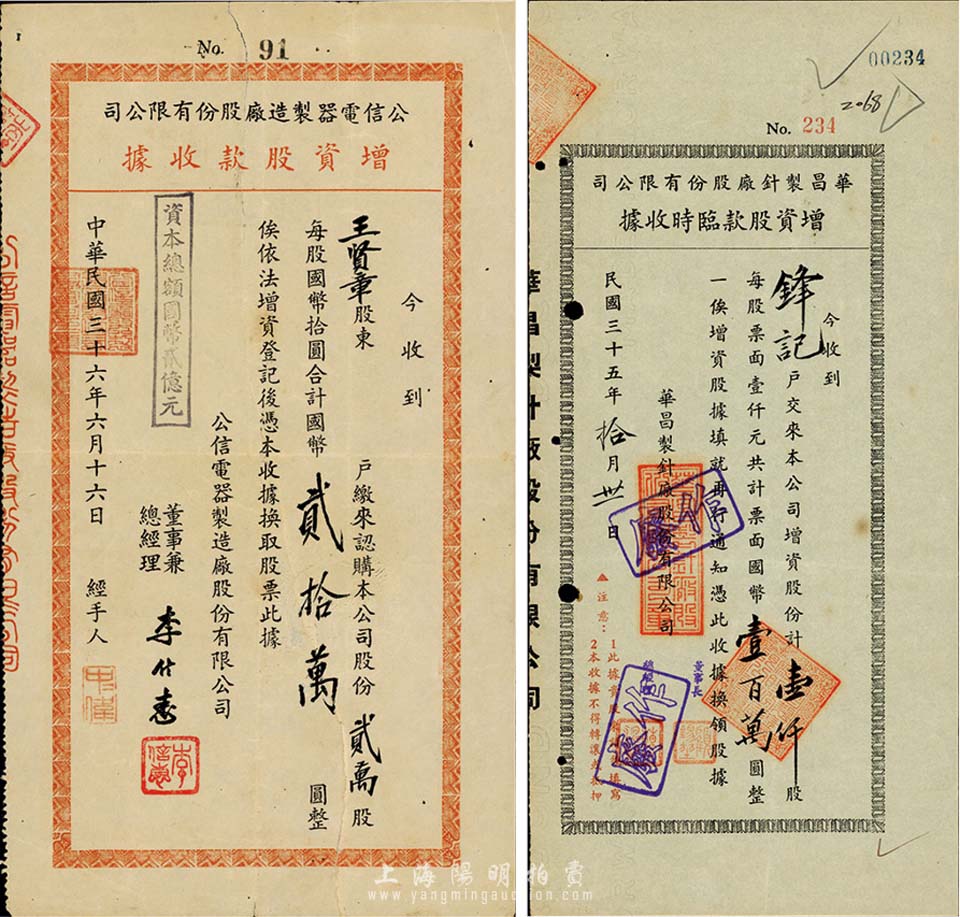 No. 91
公信電器製造廠股份有限公司
增資股款收據
今收到
王賢章股東 戶繳來認購本公司股份貳萬股
每股國幣拾圓合計國幣貳拾萬圓整
俟依法增資登記後憑本收據換取股票此據
公信電器製造廠股份有限公司
董事兼
總經理
資本總額國幣貳億元
中華民國三十六年六月十六日 經手人
00234
2068
No. 234
華昌製針廠股份有限公司
增資股款臨時收據
今收到
鋒記戶交來本公司增資股份計壹仟股
每股票面壹仟元共計票面國幣壹百萬圓整
一俟增資股據填就再行通知憑此收據換領股據
華昌製針廠股份有限公司
董事長
民國三十五年拾月卅一日
注意：
2本收據不得轉讓或抵押
作廢
作廢
華昌製針廠股份有限公司
上海陽明拍賣
www.yangmingauction.com